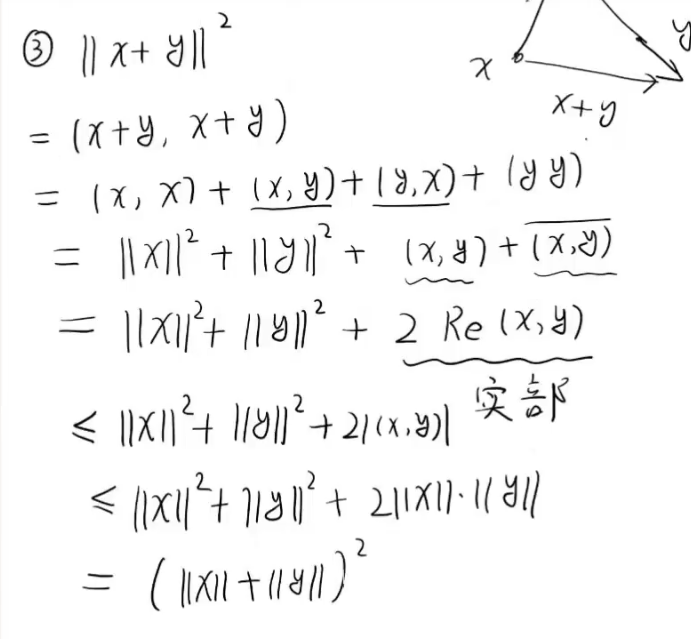 ③ ‖x+y‖²
= (x+y, x+y)
= (x, x) + (x, y) + (y, x) + (y y)
= ‖x‖² + ‖y‖² + (x, y) + \overline{(x, y)}
= ‖x‖² + ‖y‖² + 2 Re (x, y)
实部
≤ ‖x‖² + ‖y‖² + 2|(x, y)|
≤ ‖x‖² + ‖y‖² + 2‖x‖·‖y‖
= (‖x‖ + ‖y‖)²
x
y
x+y